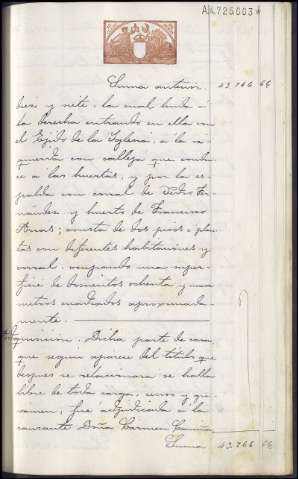 A4.725.603*
Suma anterior 43.766 66
bex y siete, la cual linda á
la derecha entrando en ella con
el Egido de la Iglesia, á la iz
quierda con calleja que condu
ce á las huertas, y por la es
palda con corral de Pedro Fer
nandez y huerto de Francisco
; consta de dos pisos, 
tas con diferentes habitaciones y
corral, ocupando una super
ficie de doscientos ochenta y nueve
metros cuadrados aproximada
mente.
quisicion. Dicha parte de casa,
que segun aparece del titulo que
despues se relacionará se halla
libre de toda carga, censo y gra
vamen, fué adjudicada á la
causante Doña Carmen
Suma 43.766 66